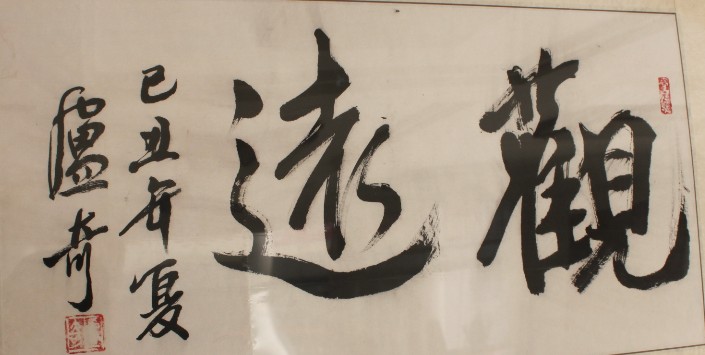 觀遠
己丑年夏
盧奇